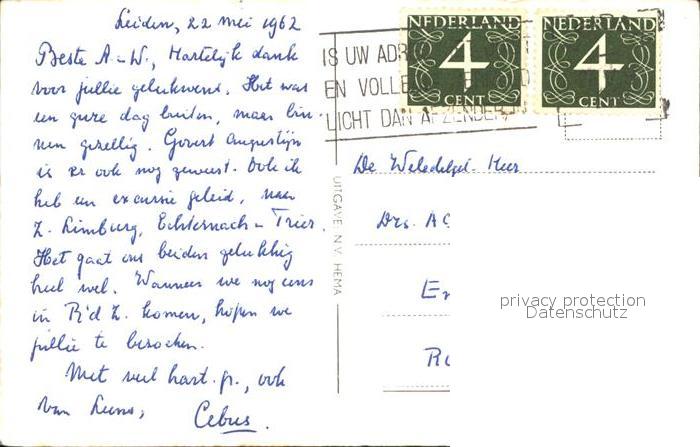 Leiden, 22 mei 1962
Beste A-W., Hartelijk dank
voor jullie gelukwens. Het was
een gure dag buiten, maar bin-
nen gezellig. Govert Augustijn
is er ook nog geweest. Ook ik
heb een excursie geleid, naar
Z. Limburg, Echternach - Trier.
Het gaat ons beiden gelukkig
heel wel. Wanneer we nog eens
in R'd Z. komen, hopen we
jullie te bezoeken.
Met veel hart. gr., ook
van
Cebus.
NEDERLAND
4
CENT
NEDERLAND
4
CENT
IS UW ADR
EN VOLLE
LICHT DAN AFZENDER
De Weledelgel. Heer
Drs. AC
UITGAVE N.V. HEMA
privacy protection
Datenschutz